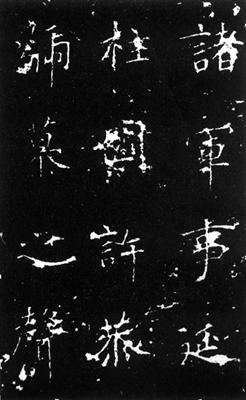 諸軍事延
柱國許恭
之聲